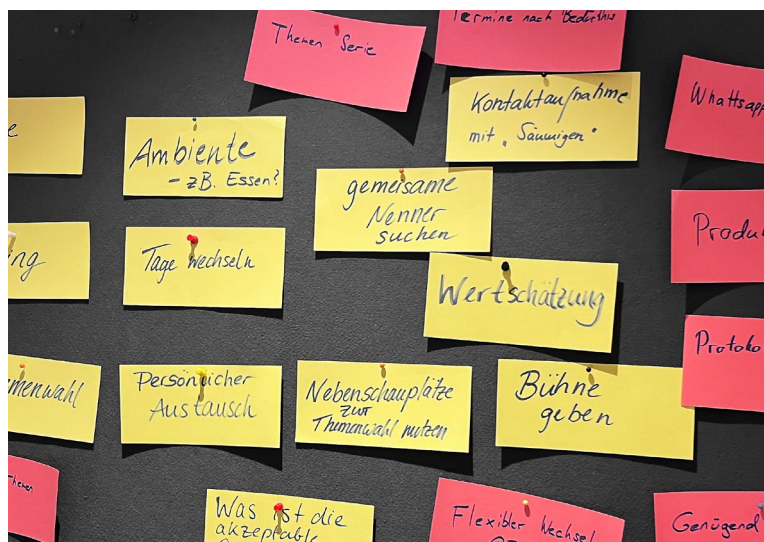 Themen Serie
Termine nach Bedürfnis
Kontaktaufnahme
mit „Säumigen“
Whattsapp
e
Ambiente
- zB. Essen?
gemeisame
Nenner
suchen
Produ
ing
Tage wechseln
Wertschätzung
Protoko
menwahl
Persönlicher
Austausch
Nebenschauplätze
zur
Themenwahl nutzen
Bühne
geben
Themen
Was ist die
akzeptable
Flexibler Wechsel
Genügend